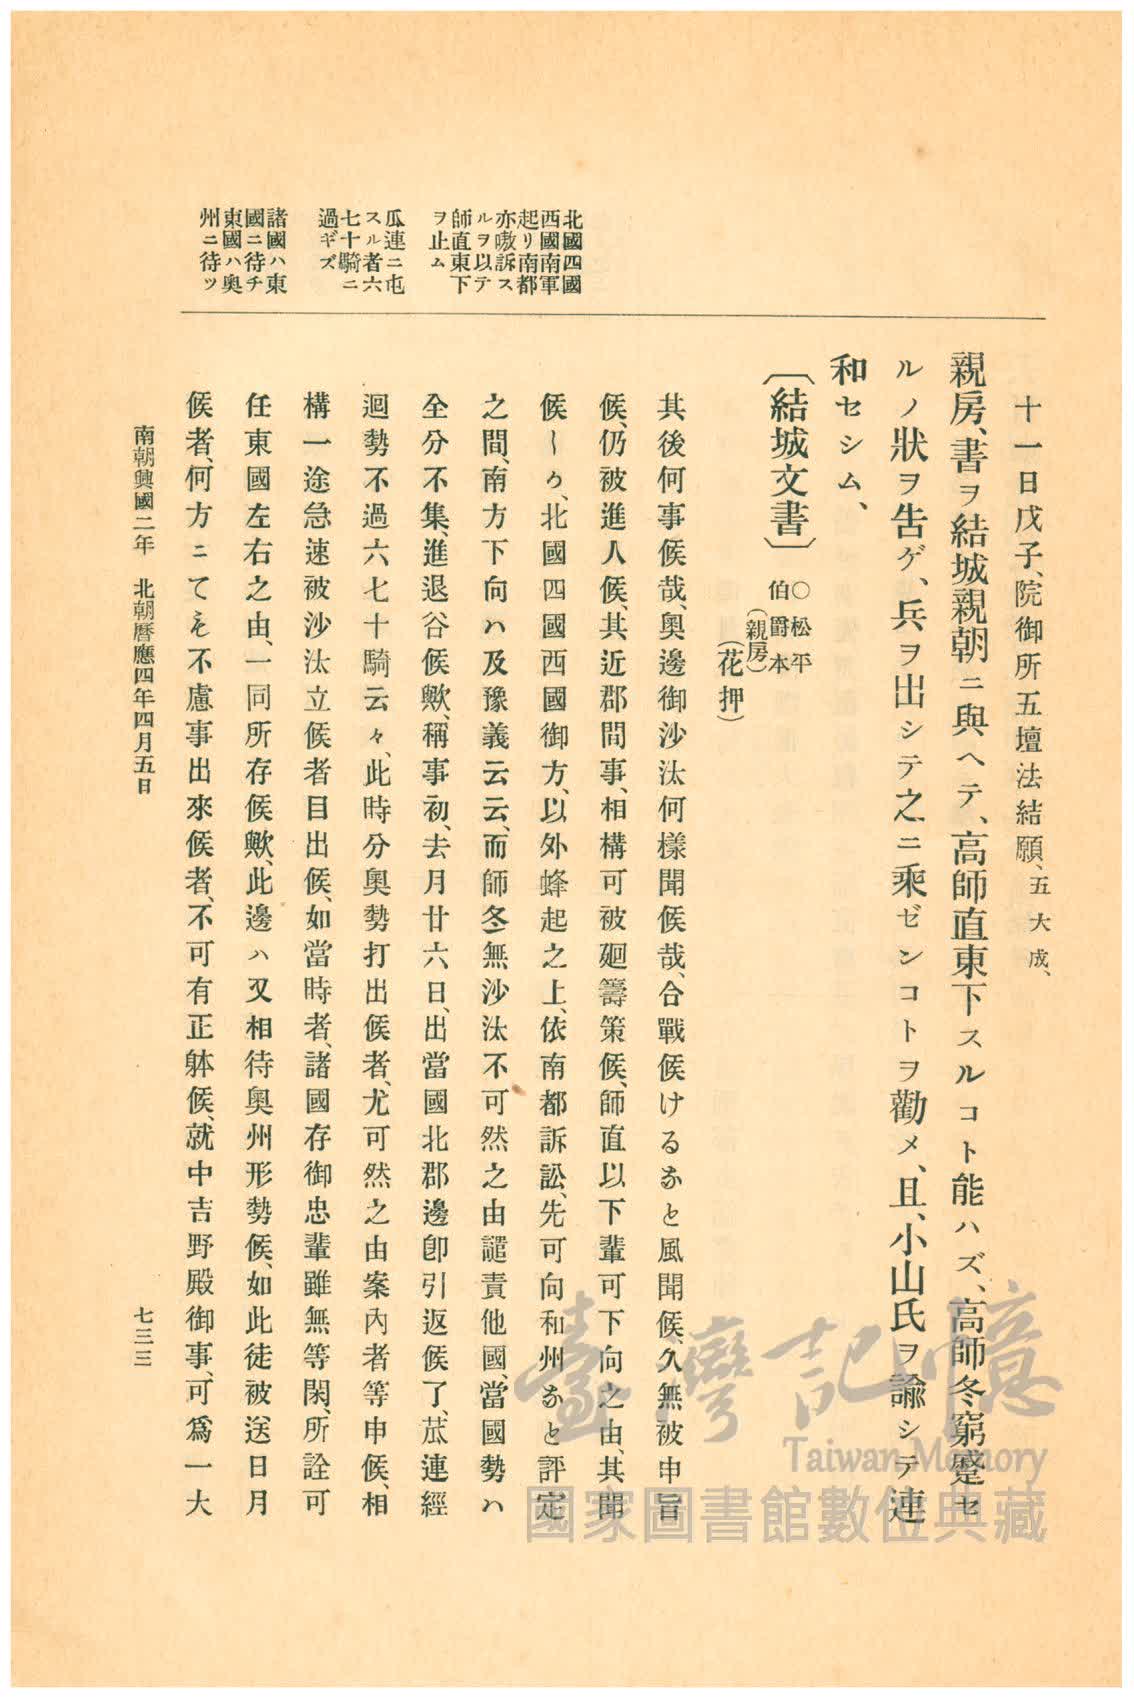 北國四國
西國南軍
起リ南都
亦嗷訴ス
ルヲ以テ
師直東下
ヲ止ム
瓜連ニ屯
スル者六
七十騎ニ
過ギズ
諸國ハ東
國ニ待チ
東國ハ奥
州ニ待ツ
十一日戊子、院御所五壇法結願、五大成、
親房、書ヲ結城親朝ニ與ヘテ、高師直東下スルコト能ハズ、高師冬窮蹙セ
ルノ狀ヲ吿ゲ、兵ヲ出シテ之ニ乘ゼンコトヲ勸メ、且、小山氏ヲ諭シテ連
和セシム、
〔結城文書〕○松平伯爵本
(親房)
(花押)
其後何事候哉、奥邊御沙汰何樣聞候哉、合戰候けるあと風聞候、久無被申旨
候、仍被進人候、其近郡間事、相構可被廻籌策候、師直以下輩可下向之由、其聞
候しか、北國四國西國御方、以外蜂起之上、依南都訴訟、先可向和州あと評定
之間、南方下向ハ及豫義云云、而師冬無沙汰不可然之由譴責他國、當國勢ハ
全分不集、進退谷候歟、稱事初、去月廿六日、出當國北郡邊卽引返候了、苽連經
廻勢不過六七十騎云々、此時分奥勢打出候者、尤可然之由案內者等申候、相
構一途急速被沙汰立候者目出候、如當時者、諸國存御忠輩雖無等閑、所詮可
任東國左右之由、一同所存候歟、此邊ハ又相待奥州形勢候、如此徒被送日月
候者、何方ニても不慮事出來候者、不可有正躰候、就中吉野殿御事、可爲一大
南朝興國二年 北朝曆應四年四月五日
七三三
臺灣記憶
Taiwan Memory
國家圖書館數位典藏